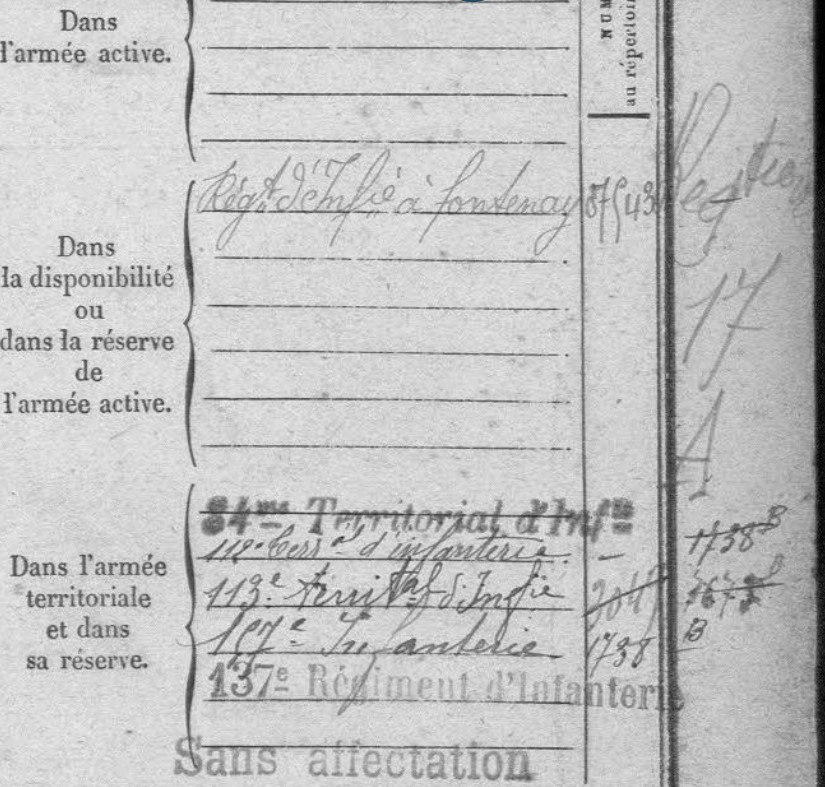 Dans
l'armée active.
NUM
au répertoi
Régt. d'Infie à fontenay
Dans
la disponibilité
ou
dans la réserve
de
l'armée active.
17
A
84me Territorial d'Infie
112e Terral d'infanterie –
1738 B
Dans l'armée
territoriale
et dans
sa réserve.
113e territal d'Infie
Infanterie 1738 B
137e Régiment d'Infanterie
Sans affectation